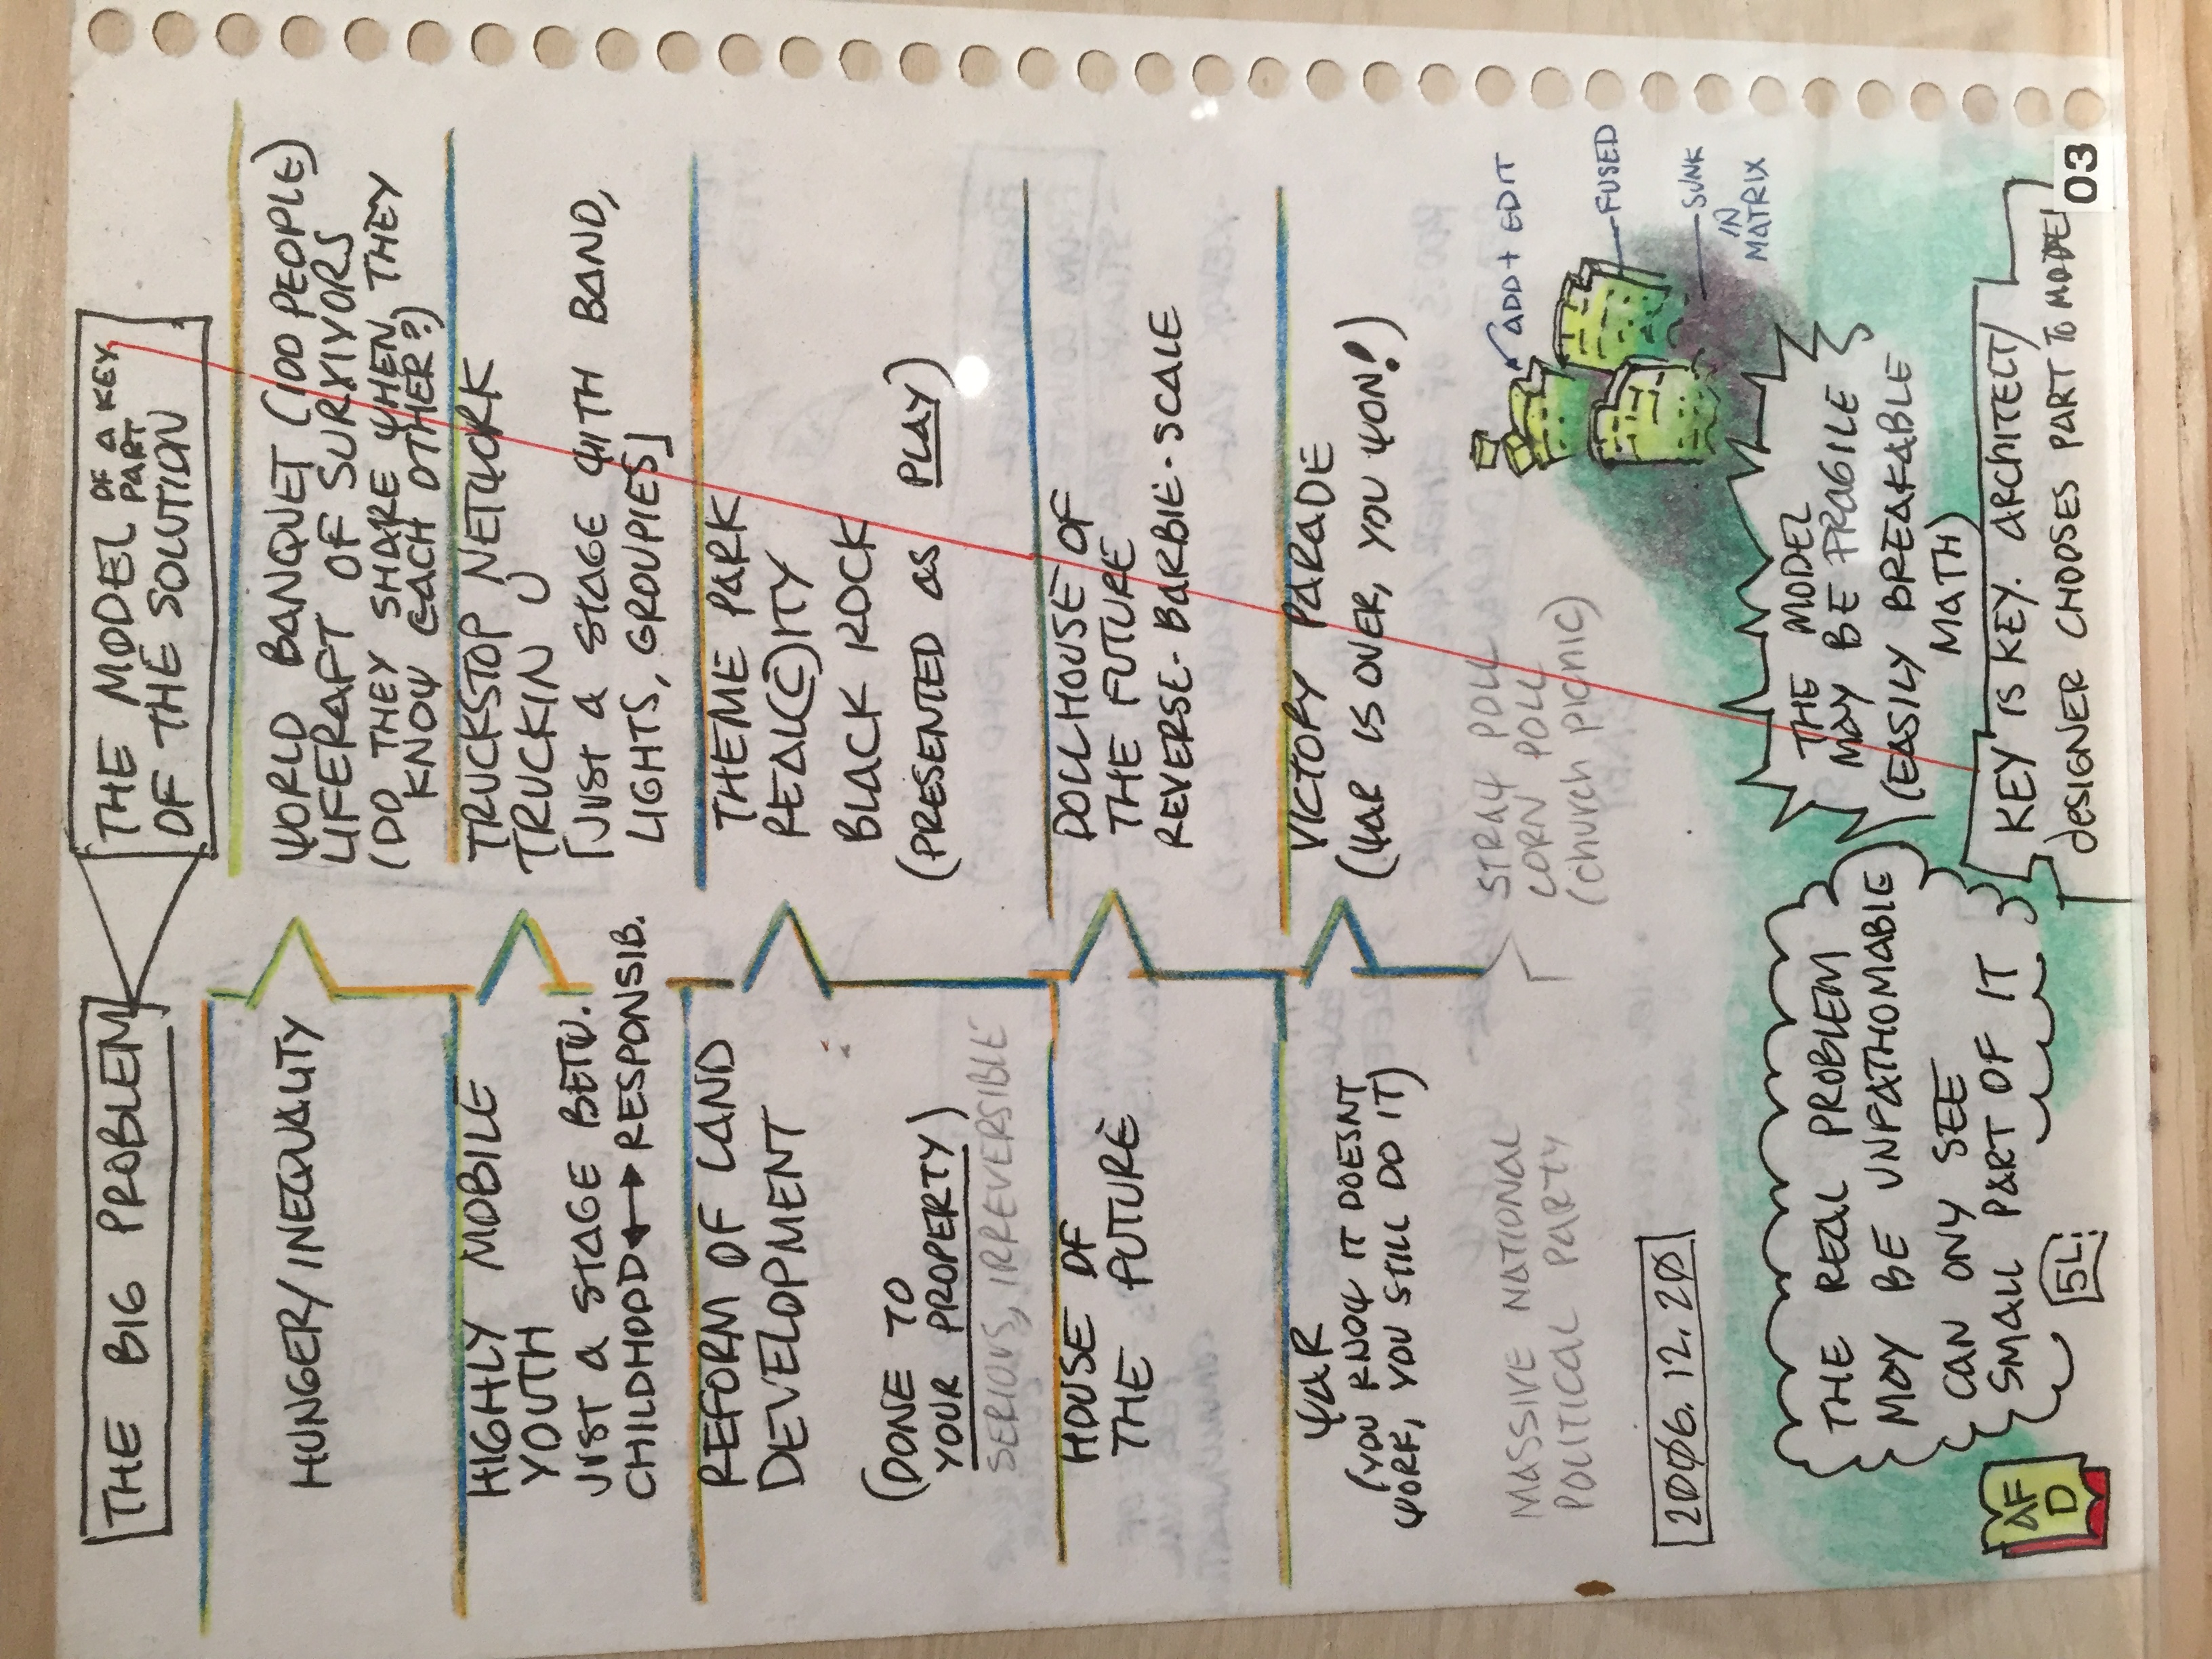 THE BIG PROBLEM
THE MODEL OF A KEY PART
OF THE SOLUTION
HUNGER/INEQUALITY
WORLD BANQUET (100 PEOPLE)
LIFERAFT OF SURVIVORS
(DO THEY SHARE WHEN THEY
KNOW EACH OTHER?)
HIGHLY MOBILE
YOUTH
JUST A STAGE BETW.
CHILDHOOD ↔ RESPONSIB.
TRUCKSTOP NETWORK
TRUCKIN U
[JUST A STAGE WITH BAND,
LIGHTS, GROUPIES]
REFORM OF LAND
DEVELOPMENT
(DONE TO
YOUR PROPERTY)
SERIOUS, IRREVERSIBLE
THEME PARK
REAL(C)ITY
BLACK ROCK
(PRESENTED AS PLAY)
HOUSE OF
THE FUTURE
DOLLHOUSE OF
THE FUTURE
REVERSE-BARBIE-SCALE
WAR
(YOU KNOW IT DOESNT
WORK, YOU STILL DO IT)
VICTORY PARADE
(WAR IS OVER, YOU WON!)
MASSIVE NATIONAL
POLITICAL PARTY
STRAW POLL
CORN POLL
(church picnic)
ADD + EDIT
FUSED
SUNK
IN
MATRIX
2006.12.20
THE REAL PROBLEM
MAY BE UNFATHOMABLE
CAN ONY SEE
SMALL PART OF IT
THE MODEL
MAY BE FRAGILE
(EASILY BREAKABLE
MATH)
KEY IS KEY. ARCHITECT/
DESIGNER CHOOSES PART TO MODEL
AF
D
5L
03